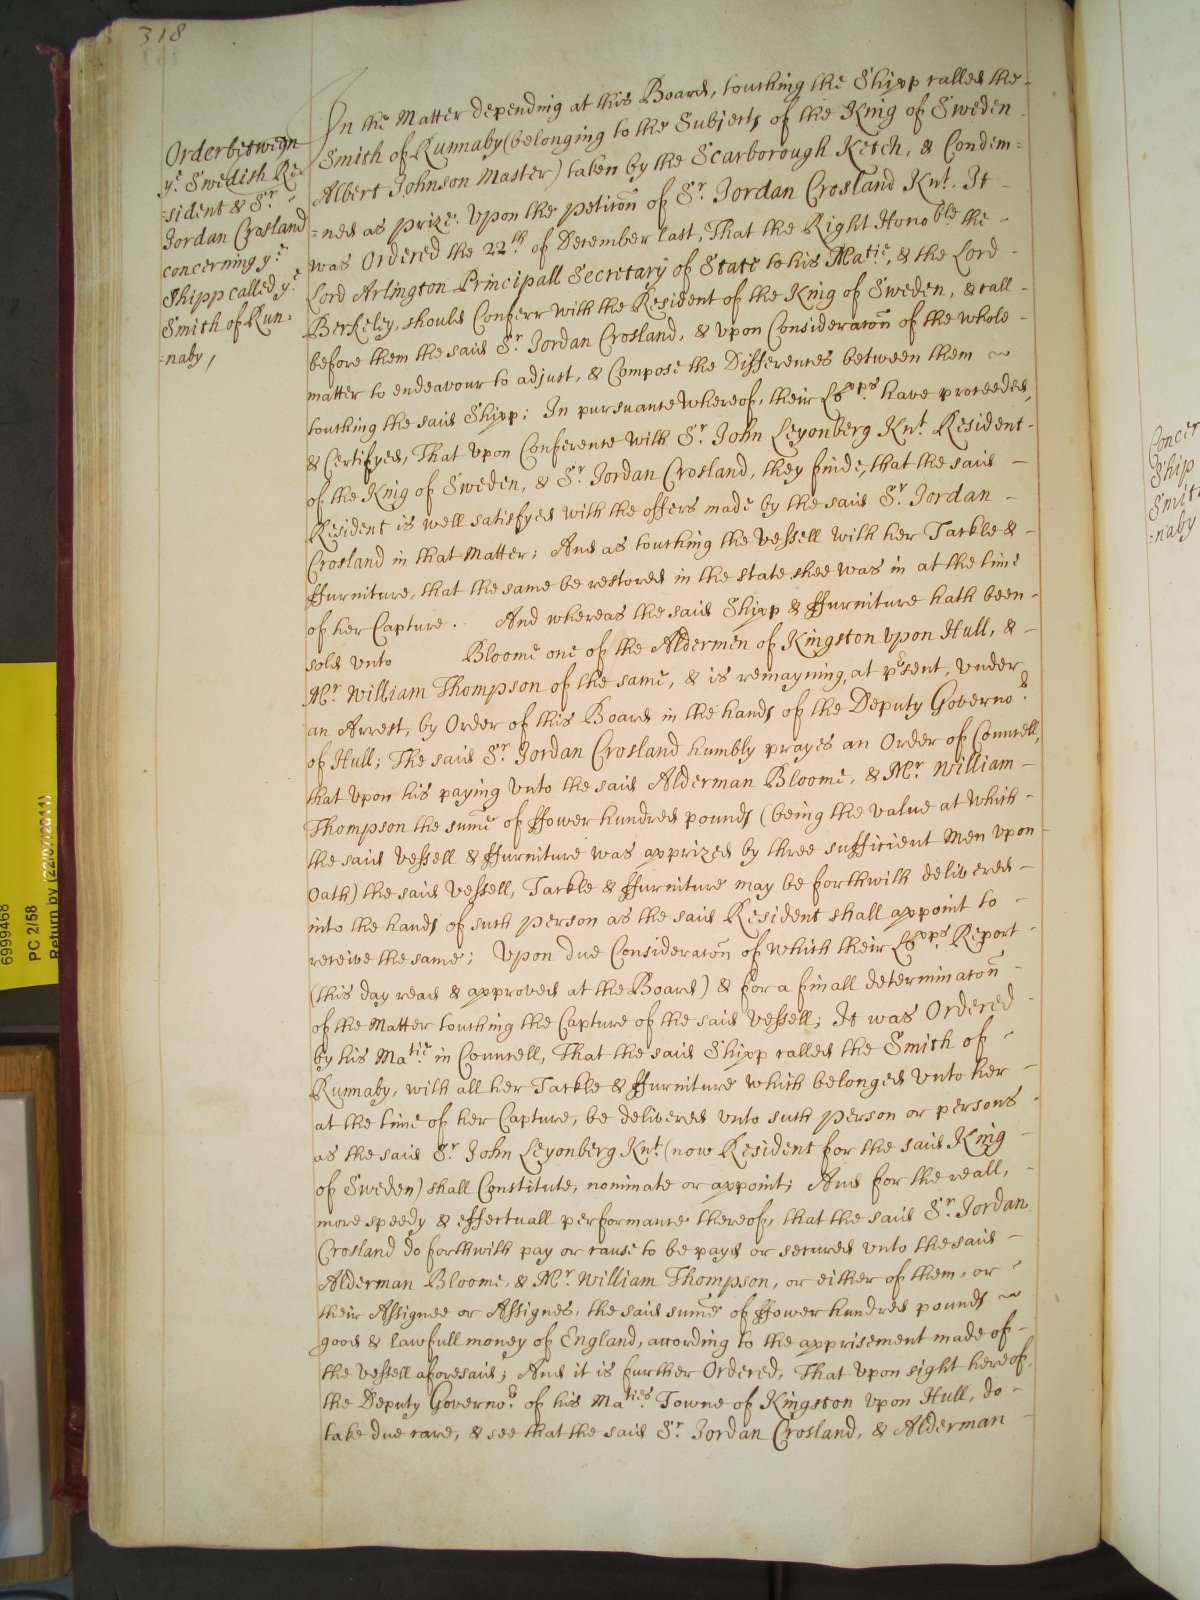 318
Order betweejn
yᵉ Swedish Re-
=sident & Sʳ
Jordan Crosland
concerning yᵉ
Shipp called yᵉ
Smith of Run=
=naby,
In the Matter depending at this Board, touching the Shipp called the-
Smith of Runnaby (belonging to the Subjects of the King of Sweden
Albert Johnson Master) taken by the Scarborough Ketch, & Condem=
=ned as prize. Upon the peticōn of Sʳ Jordan Crosland Knᵗ. It
was Ordered the 22ᵗʰ of December last, That the Right Honoᵇˡᵉ the -
Lord Arlington Principall Secretary of State to his Maᵗⁱᵉ, & the Lord -
Berkeley, should Conferr with the Resident of the King of Sweden, & call -
before them the said Sʳ Jordan Crosland, & upon Consideracōn of the whole -
matter to endeavour to adjust, & Compose the Differences between them ~
touching the said Shipp; In pursuance whereof, their Loᵖᵖˢ have proceeded,
& Certifyed, That upon Conference with Sʳ John Leyonberg Knᵗ Resident-
of the King of Sweden, & Sʳ Jordan Crosland, they finde, that the said -
Resident is well satisfyed with the offers made by the said Sʳ Jordan -
Crosland in that Matter; And as touching the vessell with her Tackle & -
ffurniture, that the same be restored in the state shee was in at the time
of her Capture. And whereas the said Shipp & ffurniture hath been-
sold unto Bloome one of the Aldermen of Kingston upon Hull, & -
Mʳ William Thompson of the same, & is remayning, at pʳsent, under
an Arrest, by Order of this Board in the hands of the Deputy Governoʳ
of Hull; The said Sʳ Jordan Crosland humbly prayes an Order of Councell,
that upon his paying unto the said Alderman Bloome, & Mʳ William -
Thompson the sum̄e of ffower hundred pounds (being the value at which -
the said vessell & ffurniture was apprized by three sufficient Men upon -
Oath) the said vessell, Tackle & ffurniture may be forthwith delivered -
into the hands of such person as the said Resident shall appoint to -
receive the same; Upon due Consideracōn of which their Loᵖᵖˢ Report -
(this day read & approved at the Board) & for a finall determinacōn -
of the Matter touching the Capture of the said vessell; It was Ordered -
by his Maᵗⁱᵉ in Councell, That the said Shipp called the Smith of -
Runnaby, with all her Tackle & ffurniture which belonged unto her -
at the time of her Capture, be delivered unto such person or persons -
as the said Sʳ John Leyonberg Knᵗ (now Resident for the said King -
of Sweden) shall Constitute, nominate or appoint; And for the reall, -
more speedy & effectuall performance thereof, that the said Sʳ Jordan
Crosland do forthwith pay or cause to be payd or secured unto the said -
Alderman Bloome, & Mʳ William Thompson, or either of them, or -
their Assignee or Assignes, the said sum̄e of ffower hundred pounds ~
good & lawfull money of England, according to the apprisement made of -
the vessell aforesaid; And it is further Ordered, That upon sight hereof,
the Deputy Governoʳ of his Maᵗⁱᵉˢ Towne of Kingston upon Hull, do -
take due care, & see that the said Sʳ Jordan Crosland, & Alderman -
Concer
Ship
Smit
=naby
6999468
PC 2/58
Return by (22/07/2011)